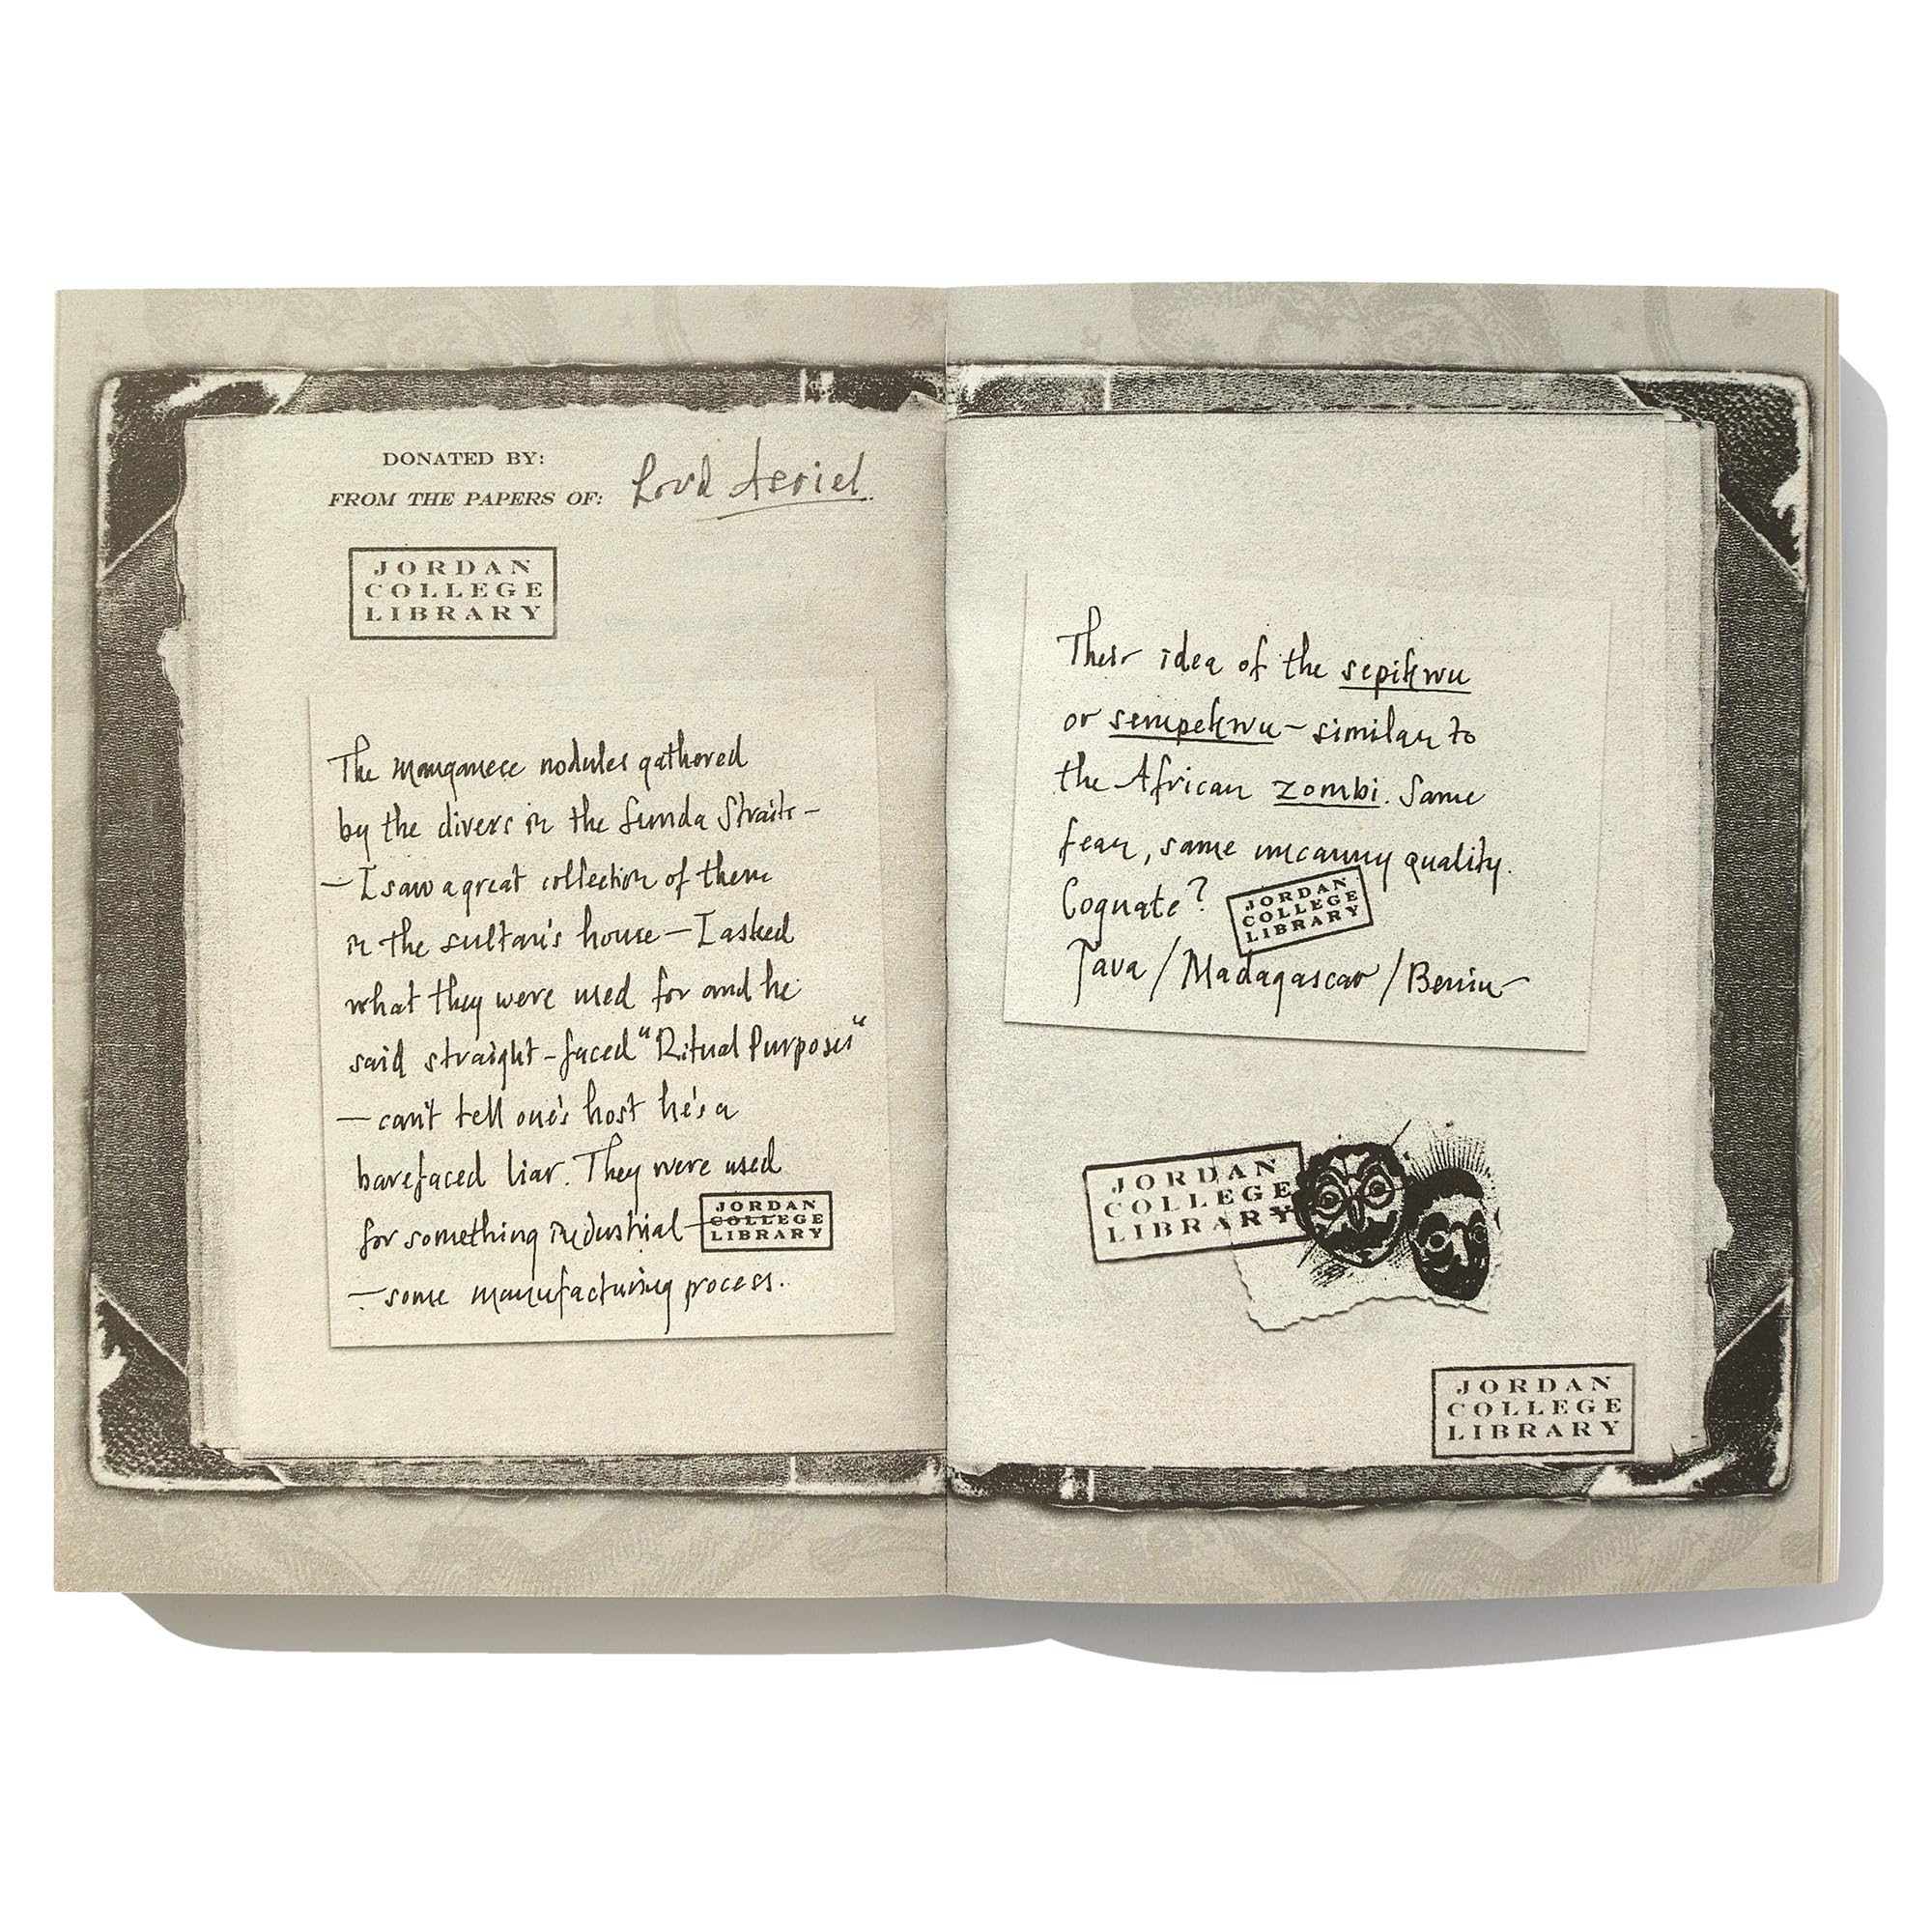 DONATED BY:
FROM THE PAPERS OF: Lord Asriel
JORDAN
COLLEGE
LIBRARY
The manganese nodules gathered
by the divers in the Sunda Straits –
– I saw a great collection of them
in the sultan's house – I asked
what they were used for and he
said straight-faced "Ritual Purposes"
– can't tell one's host he's a
barefaced liar. They were used
for something industrial –
JORDAN
COLLEGE
LIBRARY
– some manufacturing process.
Their idea of the sepikwu
or sempekwu – similar to
the African zombi. Same
fear, same uncanny quality.
Cognate?
JORDAN
COLLEGE
LIBRARY
Java / Madagascar / Benin –
JORDAN
COLLEGE
LIBRARY
JORDAN
COLLEGE
LIBRARY